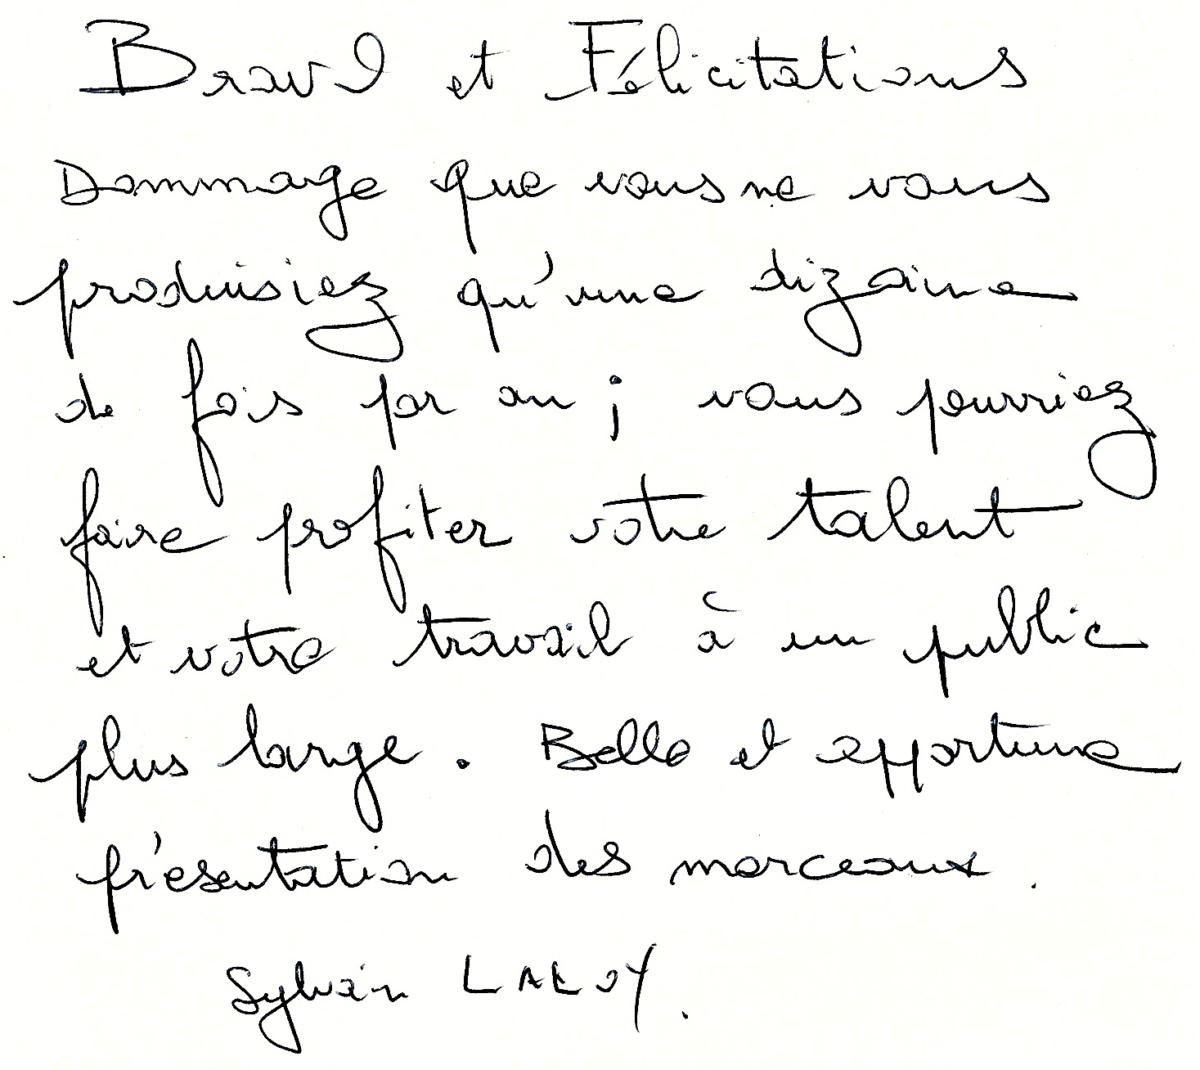 Bravo et Félicitations
Dommage que vous ne vous
produisiez qu'une dizaine
de fois par an ; vous pourriez
faire profiter votre talent
et votre travail à un public
plus large. Belle et opportune
présentation des morceaux.
Sylvain LALOY.